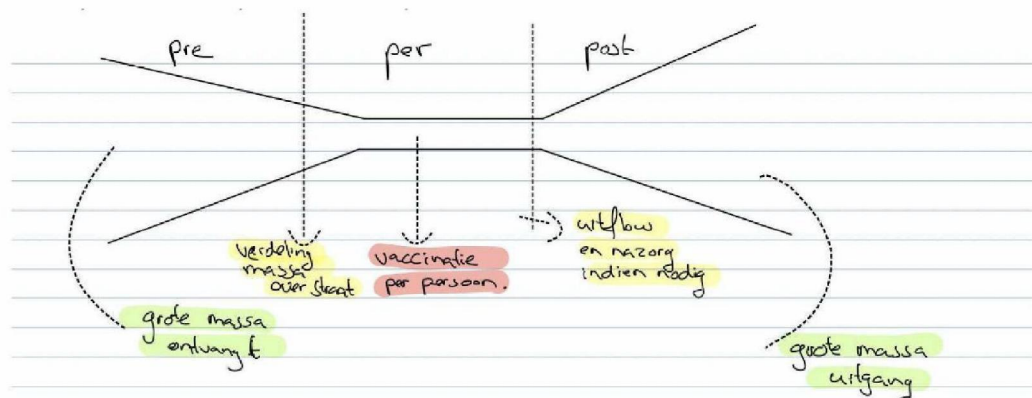 pre
per
post
verdeling
massa
over straat
vaccinatie
per persoon.
uitflow
en nazorg
indien nodig
grote massa
ontvangt
grote massa
uitgang